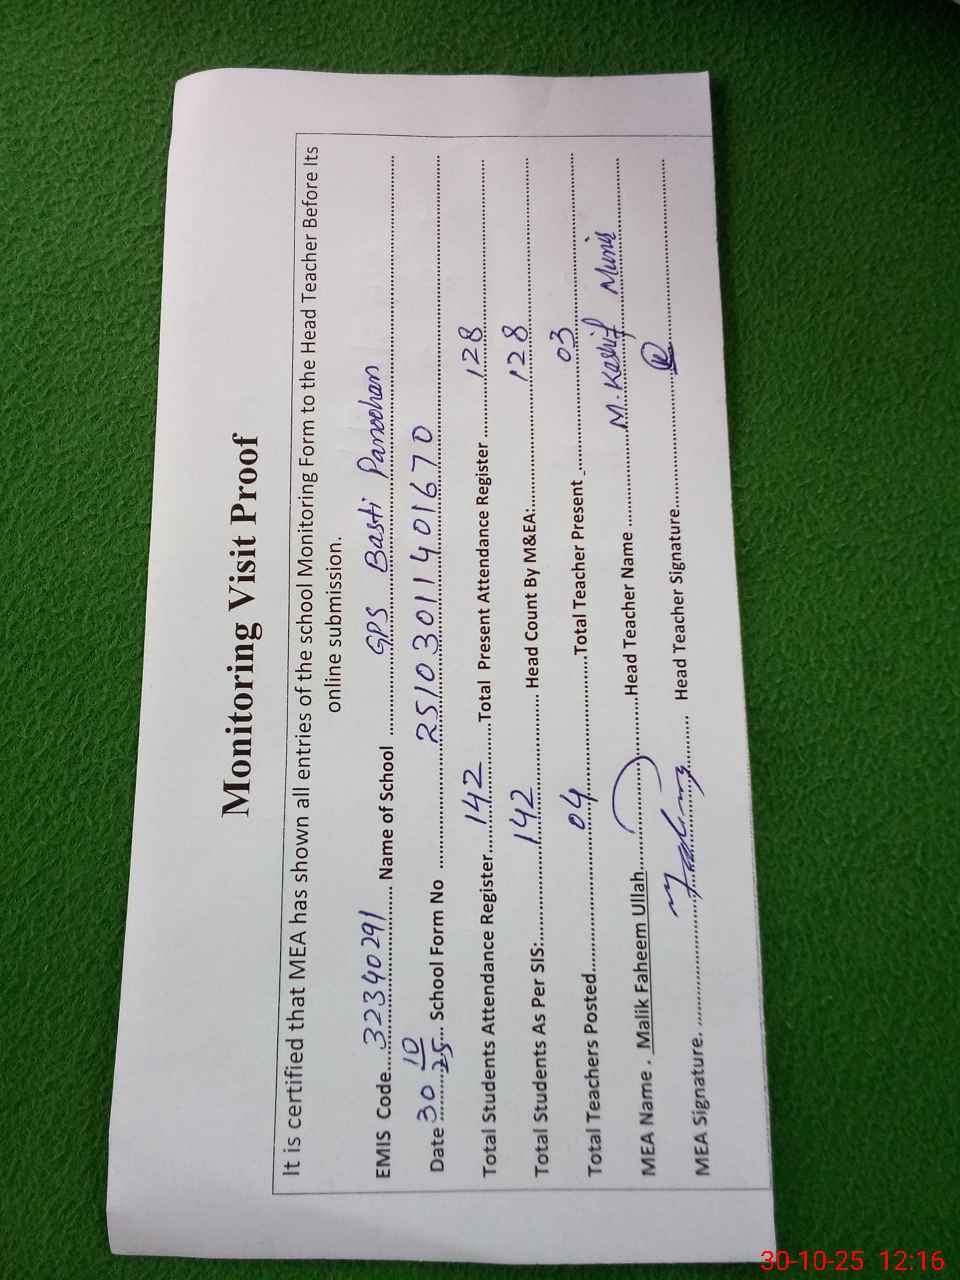 Monitoring Visit Proof
It is certified that MEA has shown all entries of the school Monitoring Form to the Head Teacher Before Its
online submission.
EMIS Code....32340291.... Name of School ............GPS Basti Panoohan............
Date 30 10/25 School Form No ............2510301401670............
Total Students Attendance Register....142....Total Present Attendance Register ....128....
Total Students As Per SIS:....142.... Head Count By M&EA:....128....
Total Teachers Posted....04....Total Teacher Present ....03....
MEA Name . Malik Faheem Ullah........Head Teacher Name ....M. Kashif Munir
MEA Signature. ........ Head Teacher Signature........
30-10-25 12:16